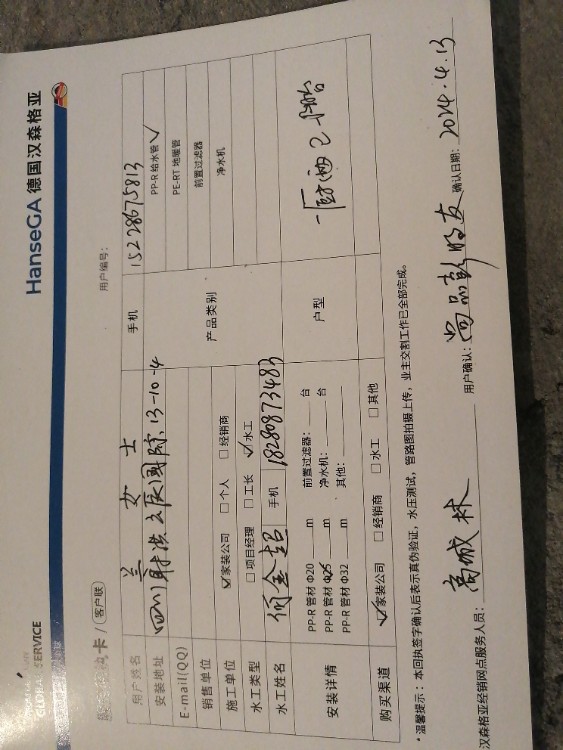 HanseGA 德国汉森格亚
GLOBAL SERVICE
卡 / 客户联
用户编号:
用户姓名 兰女士 手机 15228675813
安装地址 四川射洪文辰国际13-10-4
E-mail(QQ)
产品类别 PP-R 给水管 ✓
PE-RT 地暖管
前置过滤器
净水机
销售单位 ☑家装公司 □个人 □经销商
施工单位
水工类型 □项目经理 □工长 ☑水工
水工姓名 何金超 手机 18280873483
安装详情 PP-R 管材 Φ20 ____m 前置过滤器: ____台
PP-R 管材 Φ25 ____m 净水机: ____台
PP-R 管材 Φ32 ____m 其他:
户型 一厨两卫
购买渠道 ☑家装公司 □经销商 □水工 □其他
*温馨提示:本回执签字确认后表示真伪验证,水压测试,管路图拍摄上传,业主交割工作已全部完成。
汉森格亚经销网点服务人员: 高城林 用户确认: 尚品彭朋友 确认日期: 2024.4.13